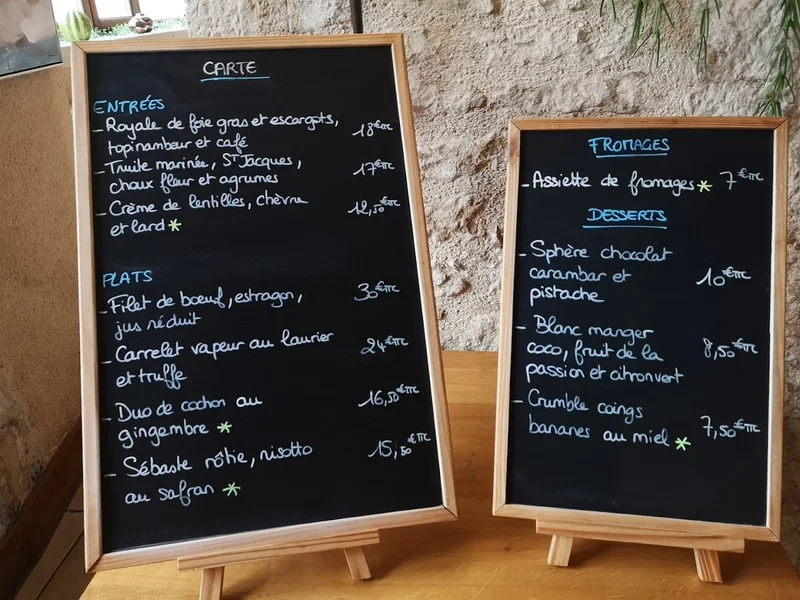 CARTE
ENTRÉES
- Royale de foie gras et escargots, 18€TTC
topinambeur et café
- Truite marinée, St Jacques, 17€TTC
choux fleur et agrumes
- Crème de lentilles, chèvre 12,50€TTC
et lard *
PLATS
- Filet de boeuf, estragon, 30€TTC
jus réduit
- Carrelet vapeur au laurier 24€TTC
et truffe
- Duo de cochon au 16,50€TTC
gingembre *
- Sébaste rôtie, risotto 15,50€TTC
au safran *
FROMAGES
- Assiette de fromages * 7€TTC
DESSERTS
- Sphère chocolat
carambar et 10€TTC
pistache
- Blanc manger
coco, fruit de la 8,50€TTC
passion et citron vert
- Crumble coings
bananes au miel * 7,50€TTC